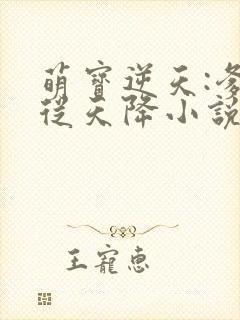 萌寶逆天:
從天降小說
王寵惠